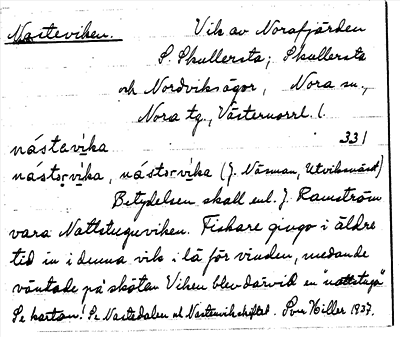 Nasteviken.
Vik av Norafjärden
S. Skullersta, Skullersta
och Nordviksägor, Nora sn.,
Nora tg., Västernorrl. l.
nástavika 331
nástorvika, nástorvika (J. Näsman, Utviksnäset)
Betydelsen skall enl. J. Ramström
vara Nattstuguviken. Fiskare gingo i äldre
tid in i denna vik i lä för vinden, medande
väntade på sköten Viken blev därvid en "nattstuga"
Se kartan! Se Nastedalen o Nastevikskiftet. Sven Hiller 1937.